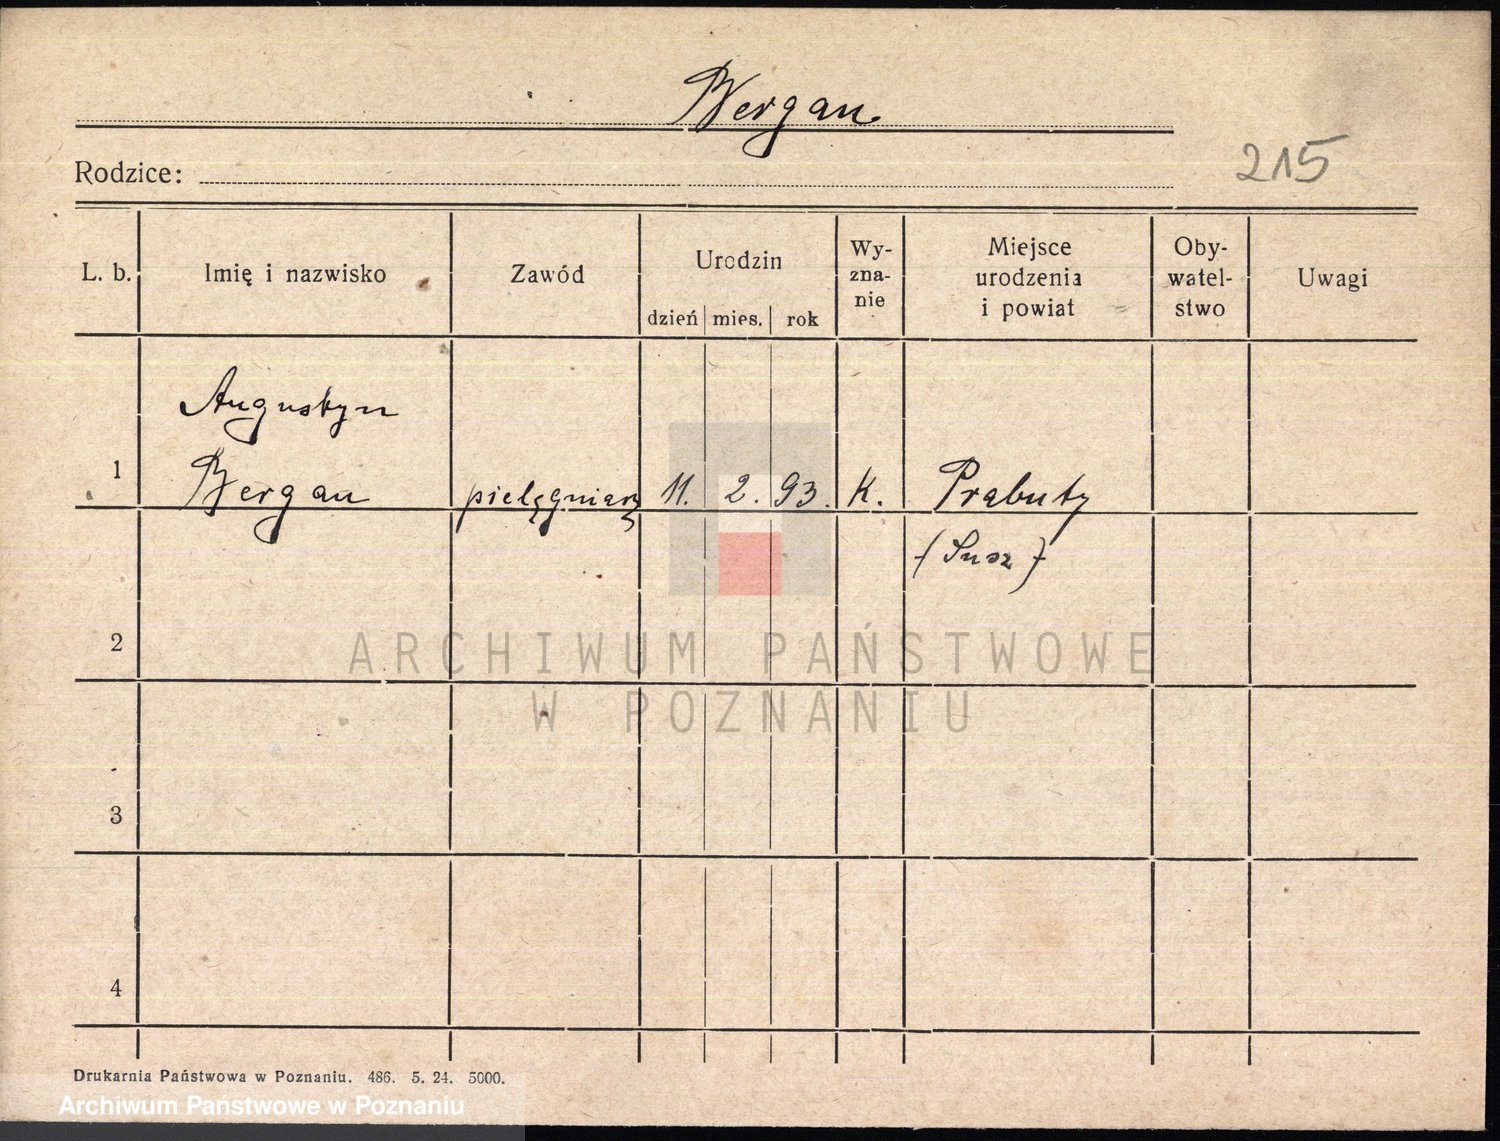 Bergan.
215
Rodzice:
L. b.
Imię i nazwisko
Zawód
Urodzin
dzień mies. rok
Wy-
zna-
nie
Miejsce
urodzenia
i powiat
Oby-
watel-
stwo
Uwagi
Augustyn
1 Bergan pielęgniarz 11. 2. 93. k. Prabuty
(Susz)
2
ARCHIWUM PAŃSTWOWE
W POZNANIU
3
4
Drukarnia Państwowa w Poznaniu. 486. 5. 24. 5000.
Archiwum Państwowe w Poznaniu